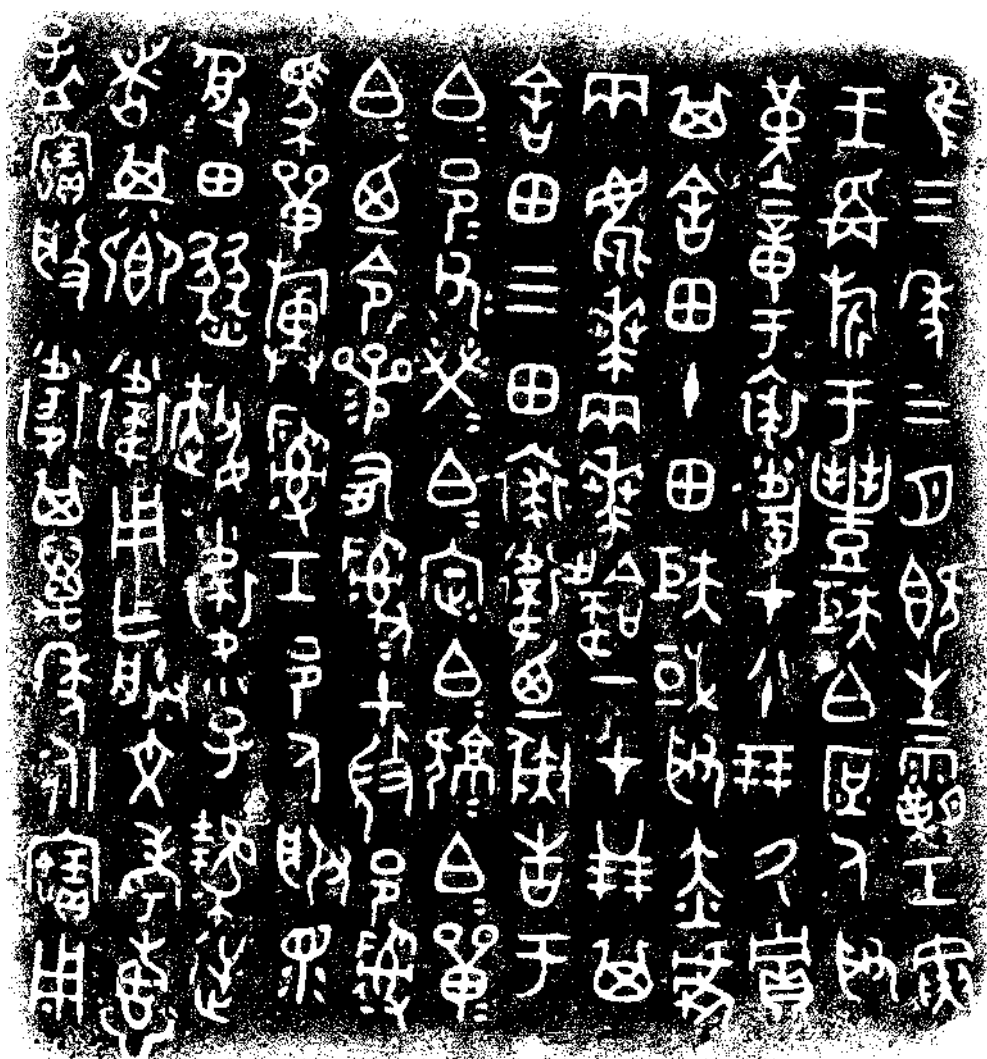 隹三年三月既生霸壬寅
王爯旂于豐矩白庶人取
堇章于裘衛才八十朋厥貯
其舍田十田矩或取赤虎
兩麀𠦪兩𠦪韐一才廿朋其
舍田三田裘衛迺彘告于
白=邑=父=榮=白=定=白=𤔲=白=單=
白=迺令參有𤔲𤔲土微邑𤔲
馬單旟𤔲工邑人服眔
受田燹趞衛小子逆
者其鄉衛用乍朕文考惠
孟寶般衛其萬年永寶用